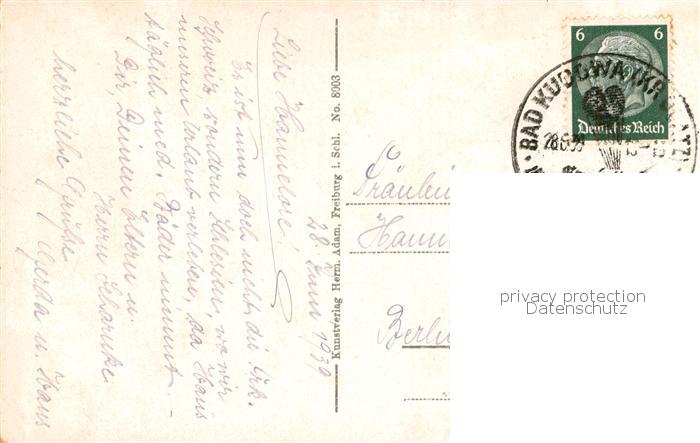 28. Juni 1939
Liebe Hannelore!
Es ist nun doch nicht die
Schweiz, sondern Schlesien, wo wir
unseren Urlaub verleben, da Hans
täglich med. Bäder nimmt. –
Dir, Deinen Eltern u.
Herrn
herzliche Grüße
Gerda u. Hans
Kunstverlag Herm. Adam, Freiburg i. Schl. No. 8003
6 6
Deutsches Reich
BAD KUDOWA
28.6.39
Fräulein
Hann
Berlin
privacy protection
Datenschutz